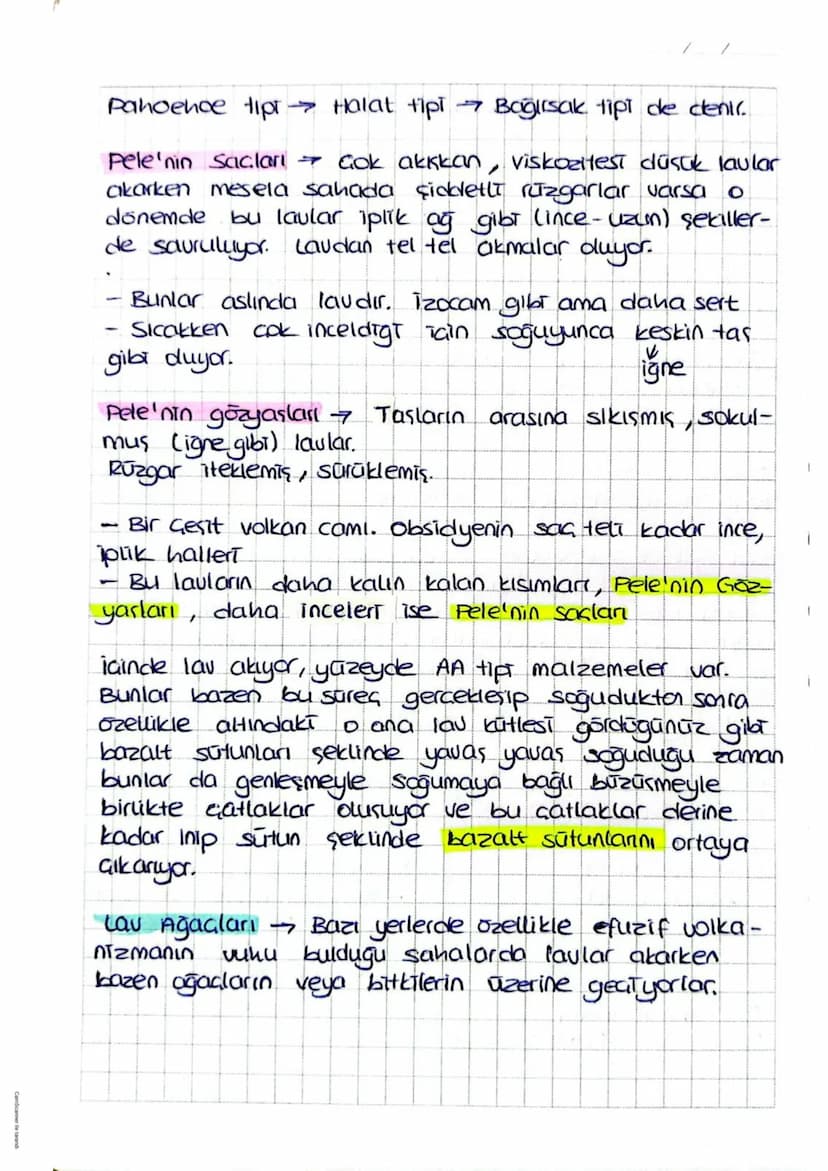 / /
Pahoehoe tipi → Halat tipi → Bağırsak tipi de denir.
Pele'nin saçları → Çok akışkan, viskozitesi düşük lavlar
akarken mesela sahada şiddetli rüzgarlar varsa o
dönemde bu lavlar iplik ağ gibi (ince-uzun) şekiller-
de savruluyor. Lavdan tel tel akmalar oluyor.
- Bunlar aslında lavdır. İzocam gibi ama daha sert
- Sıcakken çok inceldiği için soğuyunca keskin taş
gibi oluyor.
iğne
Pele'nin gözyaşları → Taşların arasına sıkışmış, sokul-
muş (iğne gibi) lavlar.
Rüzgar iteklemiş, sürüklemiş.
- Bir çeşit volkan camı. Obsidyenin saç teli kadar ince,
iplik halleri
- Bu lavların daha kalın kalan kısımları, Pele'nin Göz-
yaşları, daha inceleri ise Pele'nin saçları
İçinde lav akıyor, yüzeyde AA tipi malzemeler var.
Bunlar bazen bu süreç gerçekleşip soğuduktan sonra
özellikle altındaki o ana lav kütlesi gördüğünüz gibi
bazalt sütunları şeklinde yavaş yavaş soğuduğu zaman
bunlar da genleşmeyle soğumaya bağlı büzüşmeyle
birlikte çatlaklar oluşuyor ve bu çatlaklar derine
kadar inip sütun şeklinde bazalt sütunlarını ortaya
çıkarıyor.
Lav Ağaçları → Bazı yerlerde özellikle efuzif volka-
nizmanın vuku bulduğu sahalarda lavlar akarken
bazen ağaçların veya bitkilerin üzerine geçiyorlar.
CamScanner ile tarandı